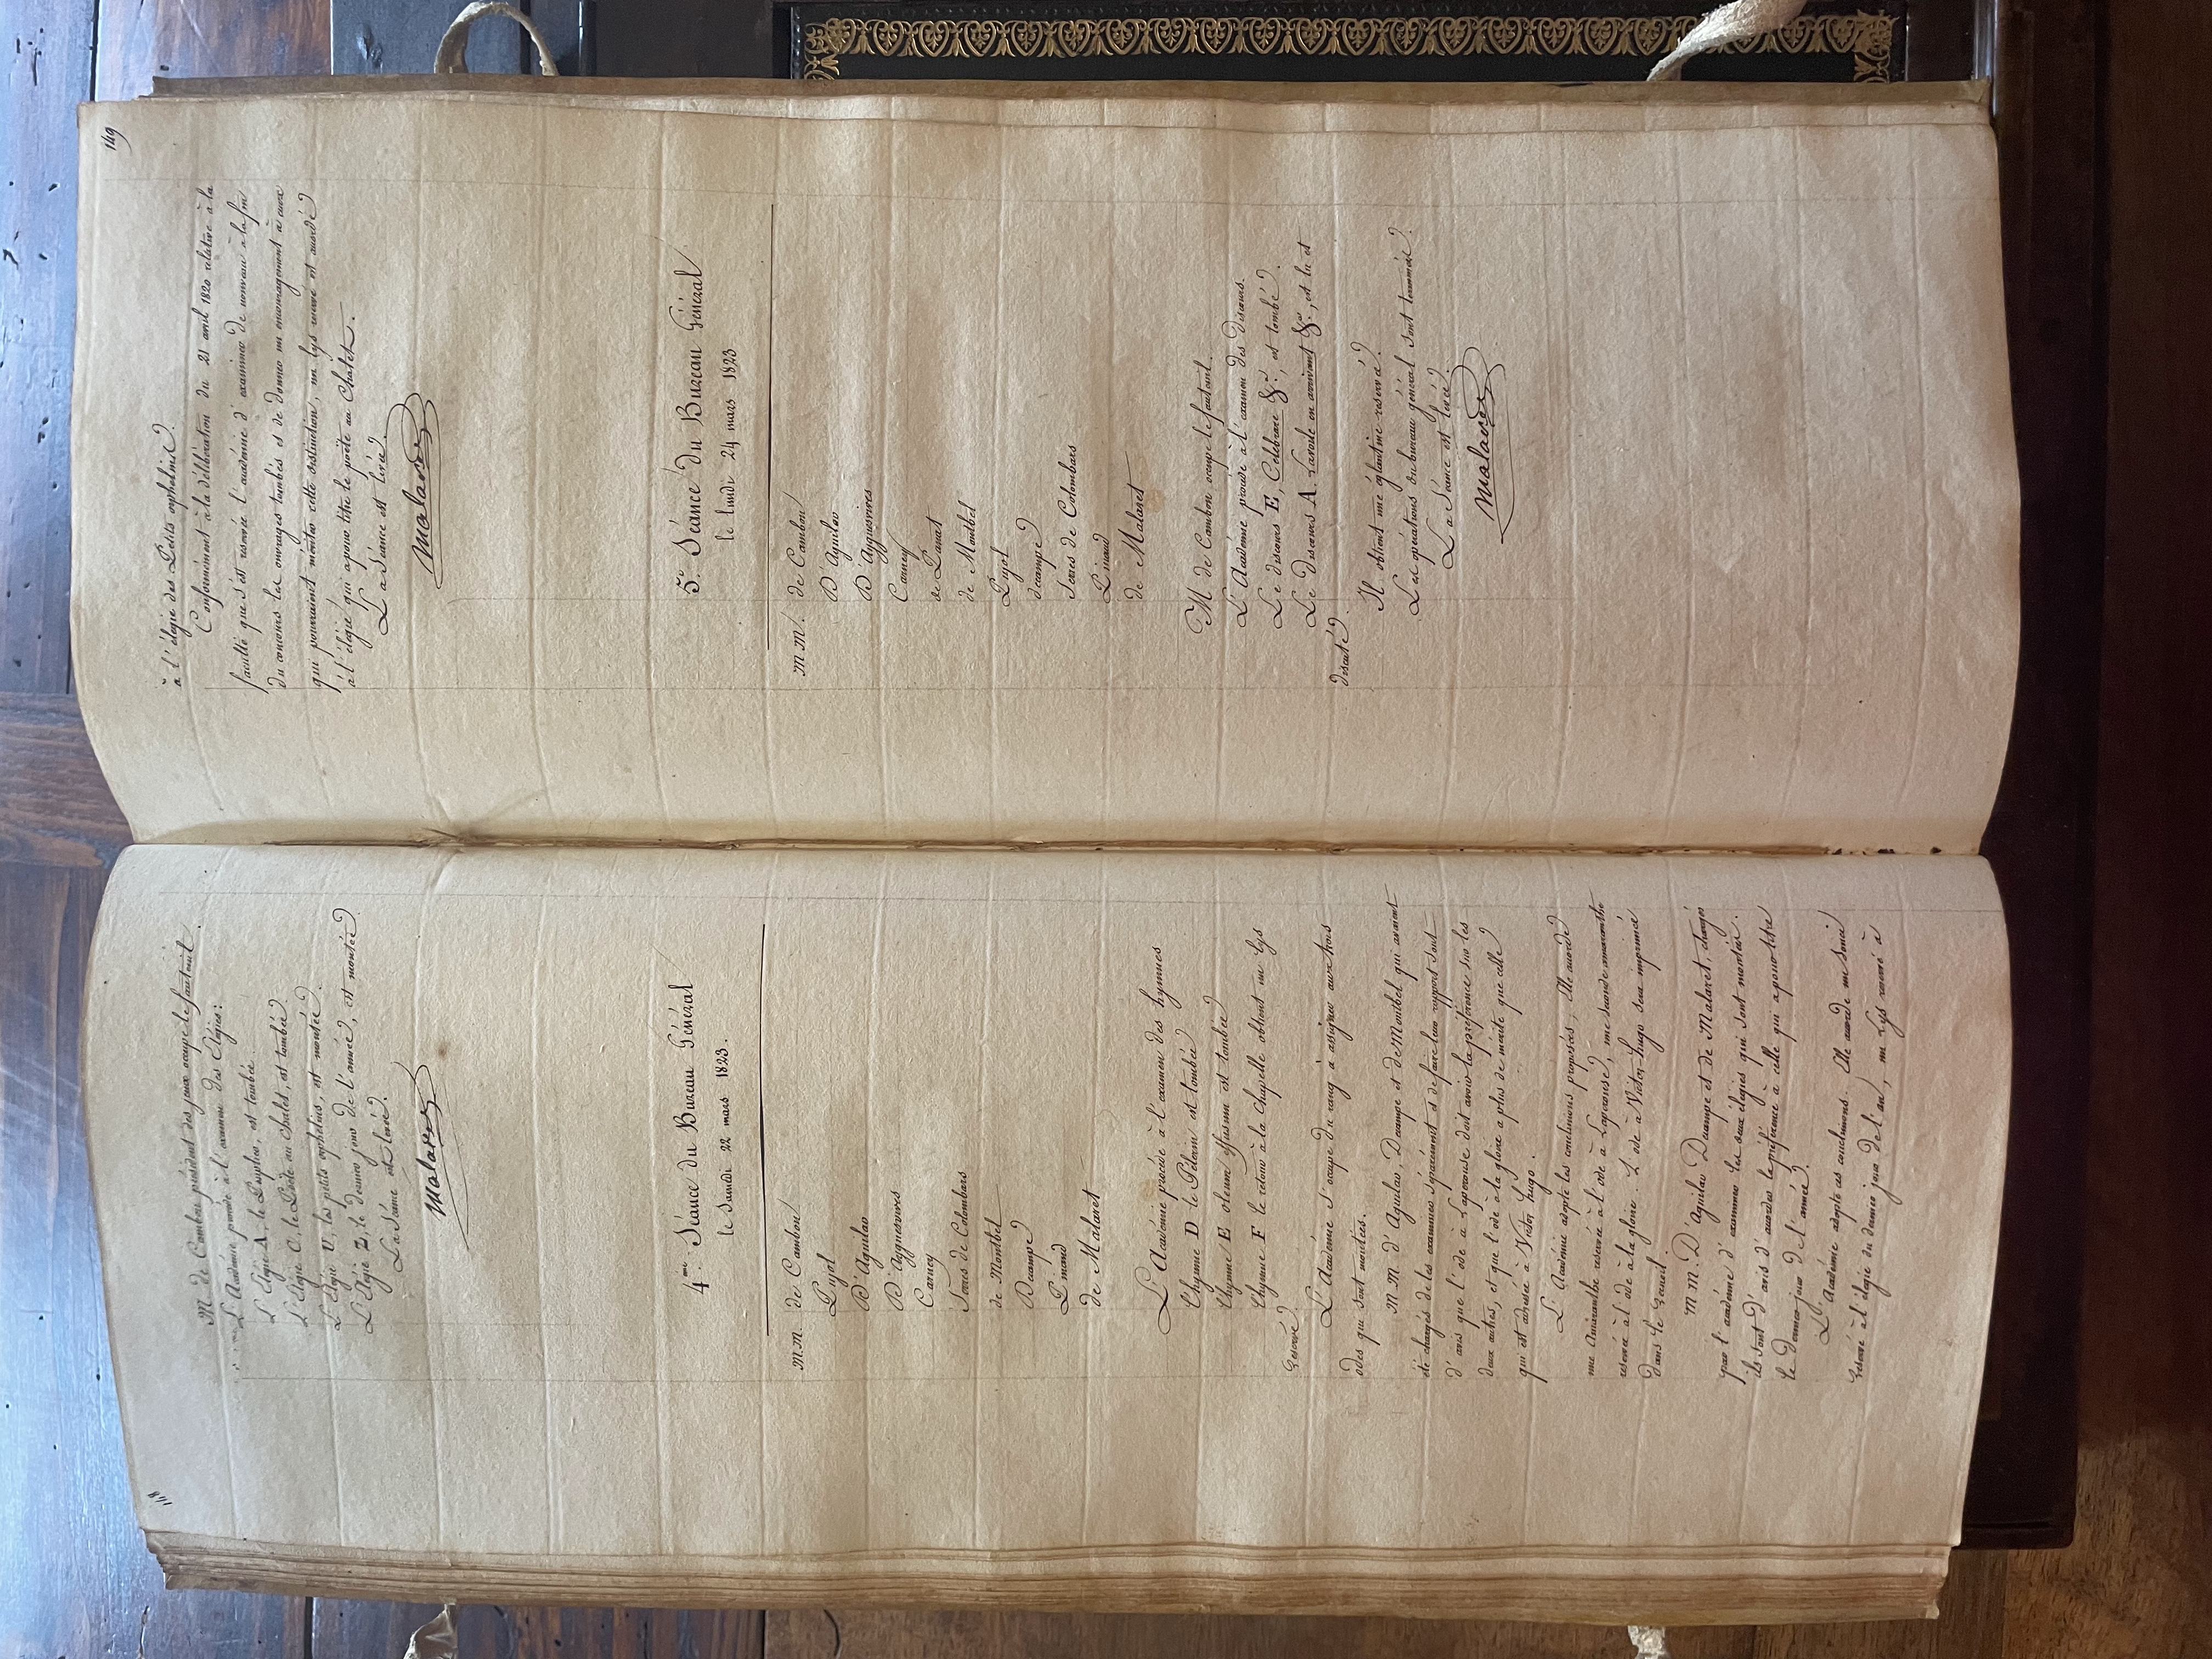 118
M. de Cambon président des jeux occupe le fauteuil.
L'Académie procède à l'examen des Elégies:
L'Elégie A, le Peuplier, est tombée.
L'Elégie C, le Poëte au chalet, est tombée.
L'Elégie U, les petits orphelins, est montée.
L'Elégie Z, le dernier jour de l'année, est montée.
La Séance est levée.
Malaret
4me. Séance du Bureau Général
le Samedi 22 mars 1823.
M.M. de Cambon
Pujol
D'Aguilar
D'Ayguesvives
Carney
Serres de Colombars
de Montbel
Decampe
Pinaud
de Malaret
L'Académie procède à l'examen des hymnes
L'hymne D le Pélerin est tombée
L'hymne E oleum effusum est tombée
L'hymne F le retour à la Chapelle obtient un lys
reservé.
L'Académie s'occupe du rang à assigner aux trois
odes qui sont montées.
M M d'Aguilar, Decampe et de Montbel qui avaient
été chargés de les examiner séparément et de faire leur rapport sont
d'avis que l'ode à Laperouse doit avoir la préférence sur les
deux autres, et que l'ode à la gloire a plus de mérite que celle
qui est adressée à Victor hugo.
L'Académie adopte les conclusions proposées; Elle accorde
une Amaranthe reservée à l'ode à Laperouse, une seconde amaranthe
reservée à l'ode à la gloire. L'ode à Victor-hugo sera imprimée
dans le recueil.
M M. D'Aguilar Decampe et de Malaret, chargés
par l'académie d'examiner les deux élégies qui sont montées.
ils sont d'avis d'accorder la préférence à celle qui a pour titre
le dernier jour de l'année.
L'Académie adopte ces conclusions. Elle accorde un souci
reservé à l'élégie du dernier jour de l'an, un lys reservé à
149
à l'élégie des Petits orphelins.
Conformément à la délibération du 21 avril 1820 relative à la
faculté que s'est reservée l'académie d'examiner de nouveau à la fin
du concours les ouvrages tombés et de donner un encouragement à ceux
qui pourraient mériter cette distinction, un lys reservé est accordé
à l'élégie qui a pour titre le poëte au Chalet.
La Séance est levée.
Malaret
5e. Séance du Bureau Général
le lundi 24 mars 1823
M.M. de Cambon
D'Aguilar
D'Ayguesvives
Carney
de Panat
de Montbel
Pujol
decampe
Serres de Colombars
Pinaud
de Malaret
M de Cambon occupe le fauteuil.
L'Académie procède à l'examen des discours.
Le discours E, Celebrare &a., est tombé.
Le discours A. Lavoile en arrivant &a., est lu et
discuté.
Il obtient une églantine reservée.
Les opérations du bureau général sont terminées.
La Séance est levée.
Malaret